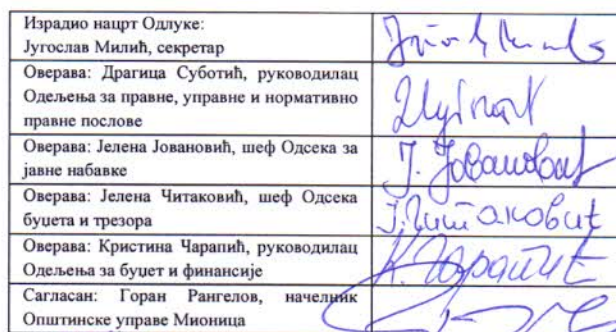 Израдио нацрт Одлуке:
Југослав Милић, секретар
Оверава: Драгица Суботић, руководилац
Одељења за правне, управне и нормативно
правне послове
Оверава: Јелена Јовановић, шеф Одсека за
јавне набавке
Ј. Јовановић
Оверава: Јелена Читаковић, шеф Одсека
буџета и трезора
Ј. Читаковић
Оверава: Кристина Чарапић, руководилац
Одељења за буџет и финансије
К. Чарапић
Сагласан: Горан Рангелов, начелник
Општинске управе Мионица